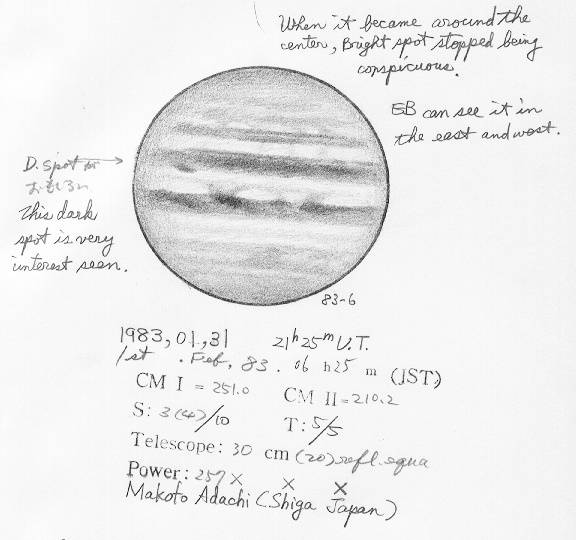 When it became around the
center, Bright spot stopped being
conspicuous.
EB can see it in
the east and west.
D. spot が
おもしろい
This dark
spot is very
interest seen.
83-6
1983,01,31 21h25m U.T.
1st . Feb, 83 . 06 h25 m (JST)
CM I = 251.0 CM II = 210.2
S: 3(4)/10 T: 5/5
Telescope: 30 cm (20) refl. equa
Power: 257× × ×
Makoto Adachi (Shiga Japan)